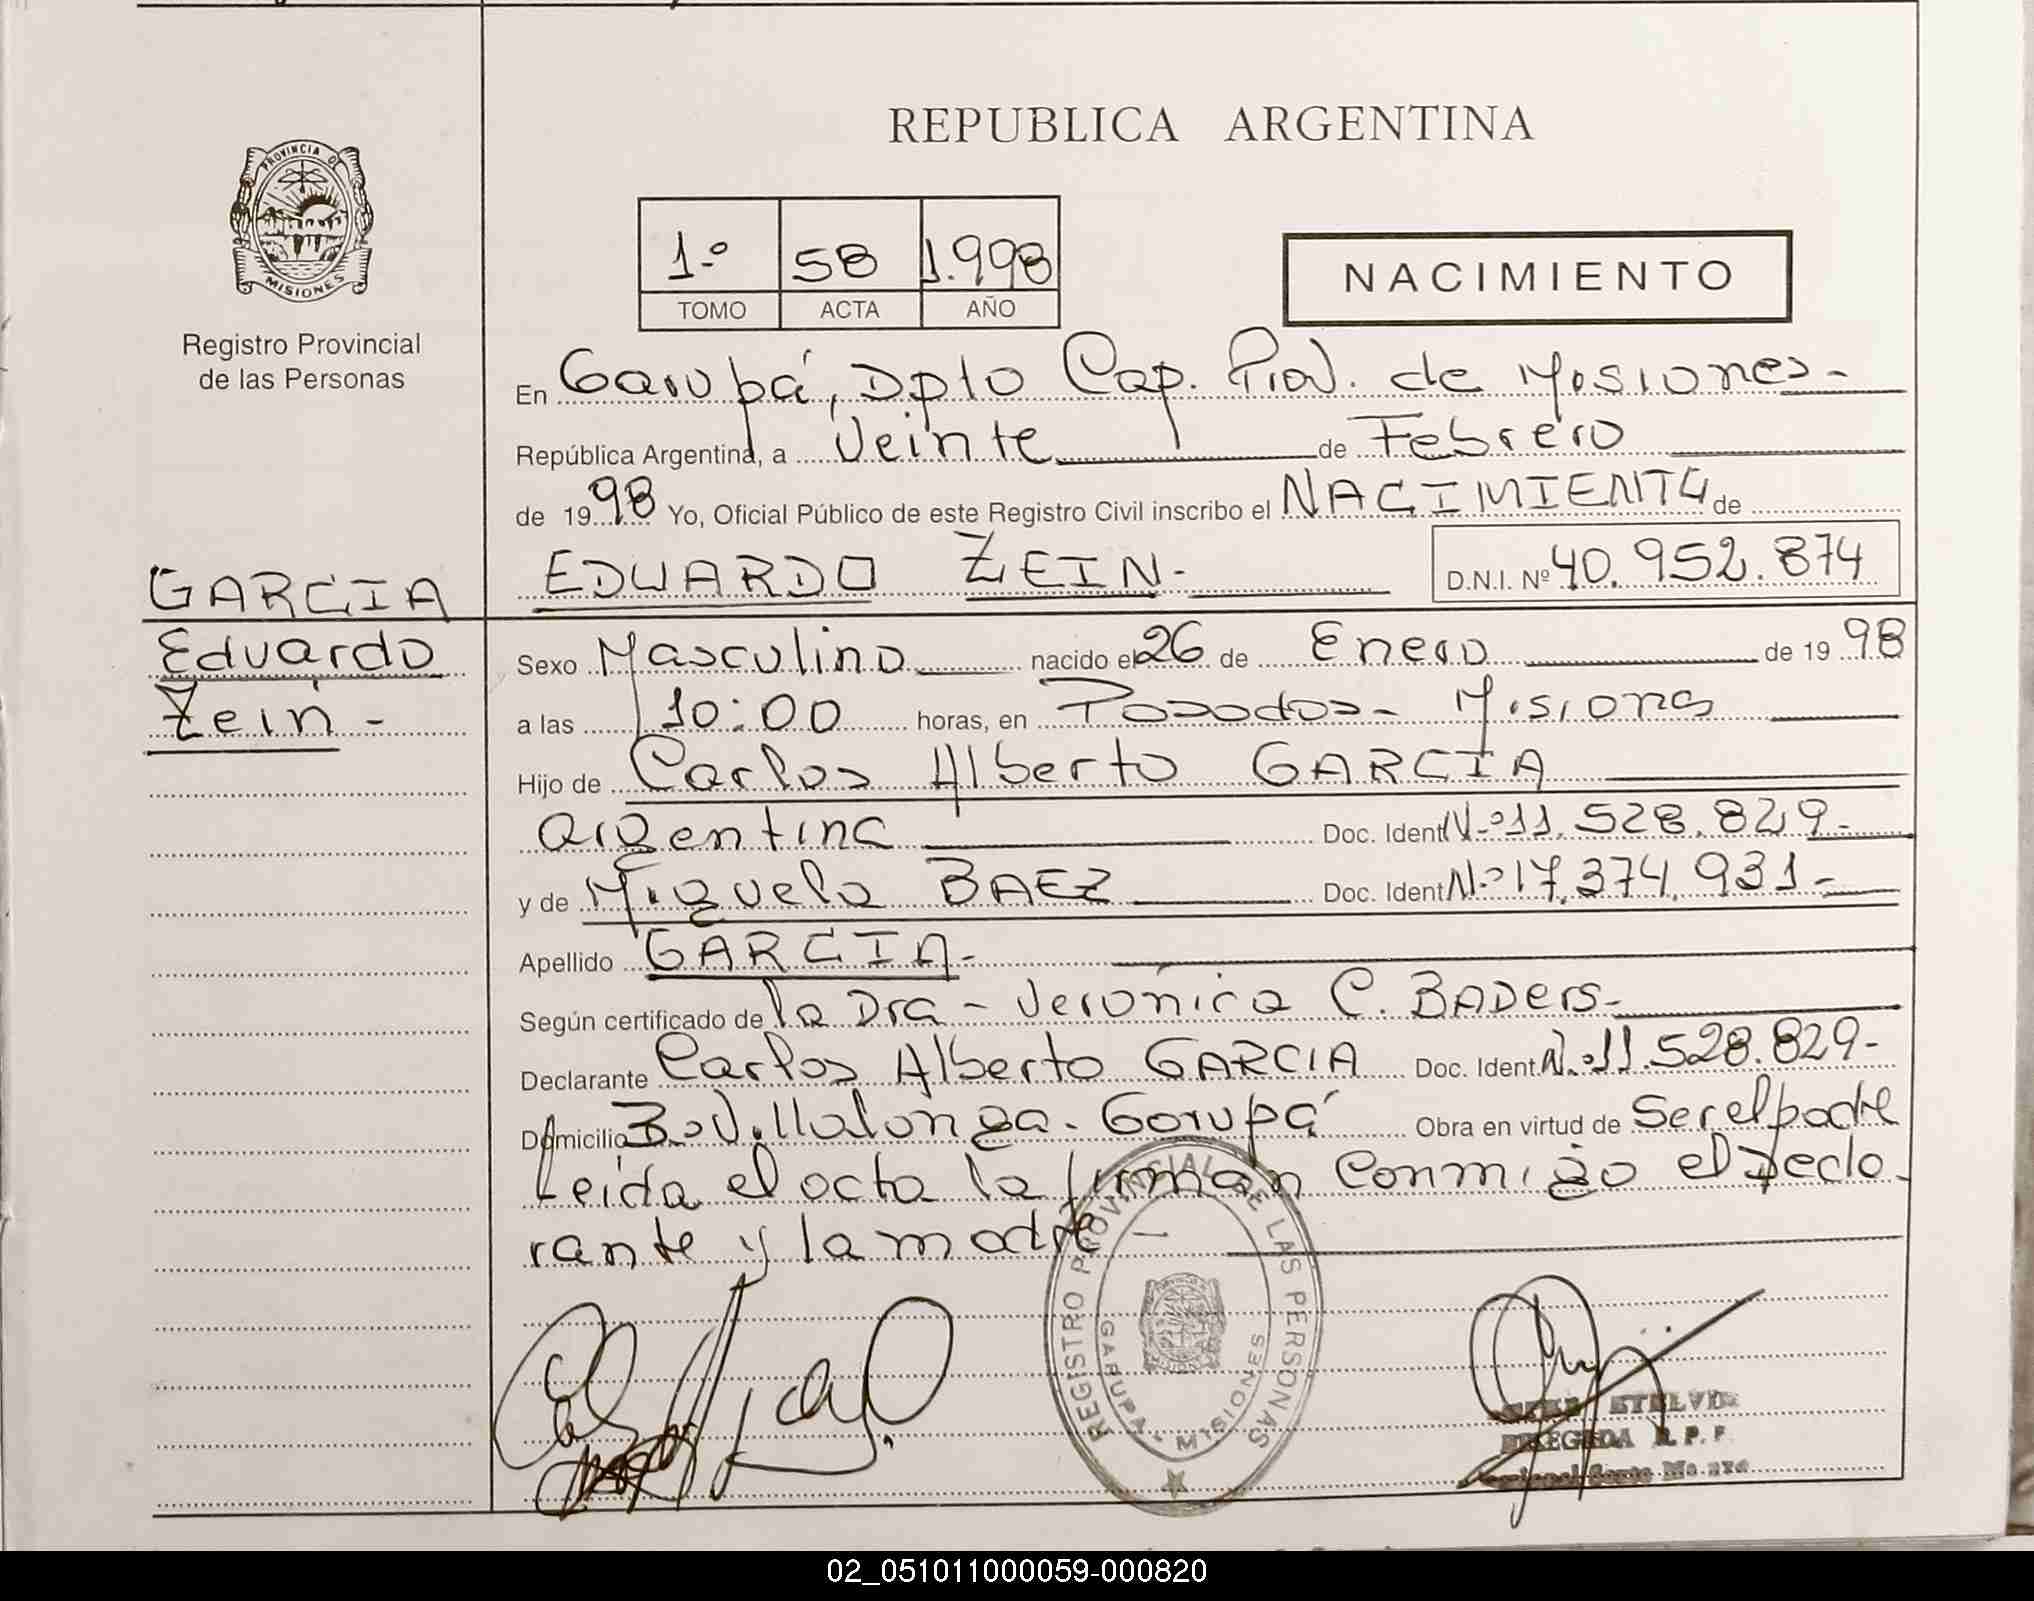 REPUBLICA ARGENTINA
PROVINCIA DE
MISIONES
Registro Provincial
de las Personas
1.º 58 1.998
TOMO ACTA AÑO
NACIMIENTO
En Garupá, Dpto Cap. Prov. de Misiones-
República Argentina, a Veinte de Febrero
de 1998 Yo, Oficial Público de este Registro Civil inscribo el NACIMIENTO de
EDUARDO ZEIN- D.N.I. Nº 40.952.874
GARCIA
Eduardo
Zein-
Sexo Masculino nacido el 26 de Enero de 1998
a las 10:00 horas, en Posadas- Misiones
Hijo de Carlos Alberto GARCIA
argentina Doc. Ident Nº 11.528.829-
y de Miguela BAEZ Doc. Ident Nº 17.374.931-
Apellido GARCIA-
Según certificado de la Dra- Verónica C. BADers-
Declarante Carlos Alberto GARCIA Doc. Ident. Nº 11.528.829-
Domicilio Bº Villalonga- Garupá Obra en virtud de Ser el padre
Leida el acta la firman conmigo el Decla-
rante y la madre
REGISTRO PROVINCIAL DE LAS PERSONAS
GARUPA - MISIONES
R. P. P.
02_051011000059-000820